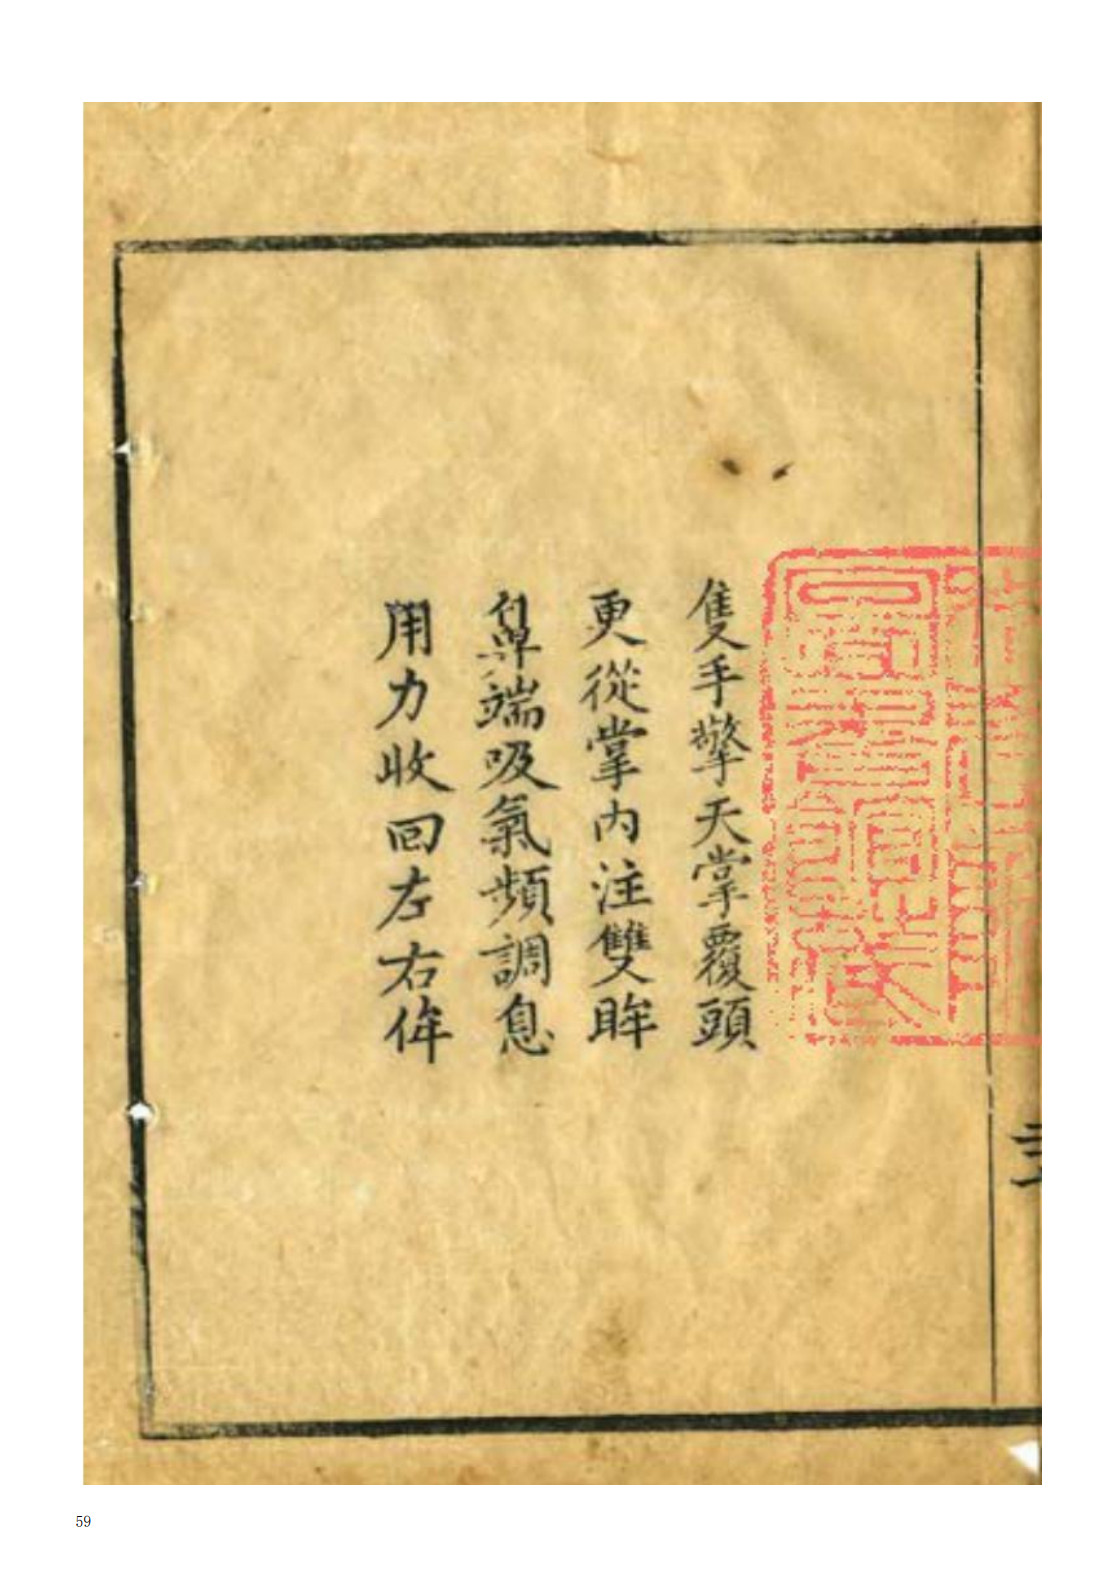 隻手擎天掌覆頭
更從掌內注雙眸
鼻端吸氣頻調息
用力收回左右侔
59